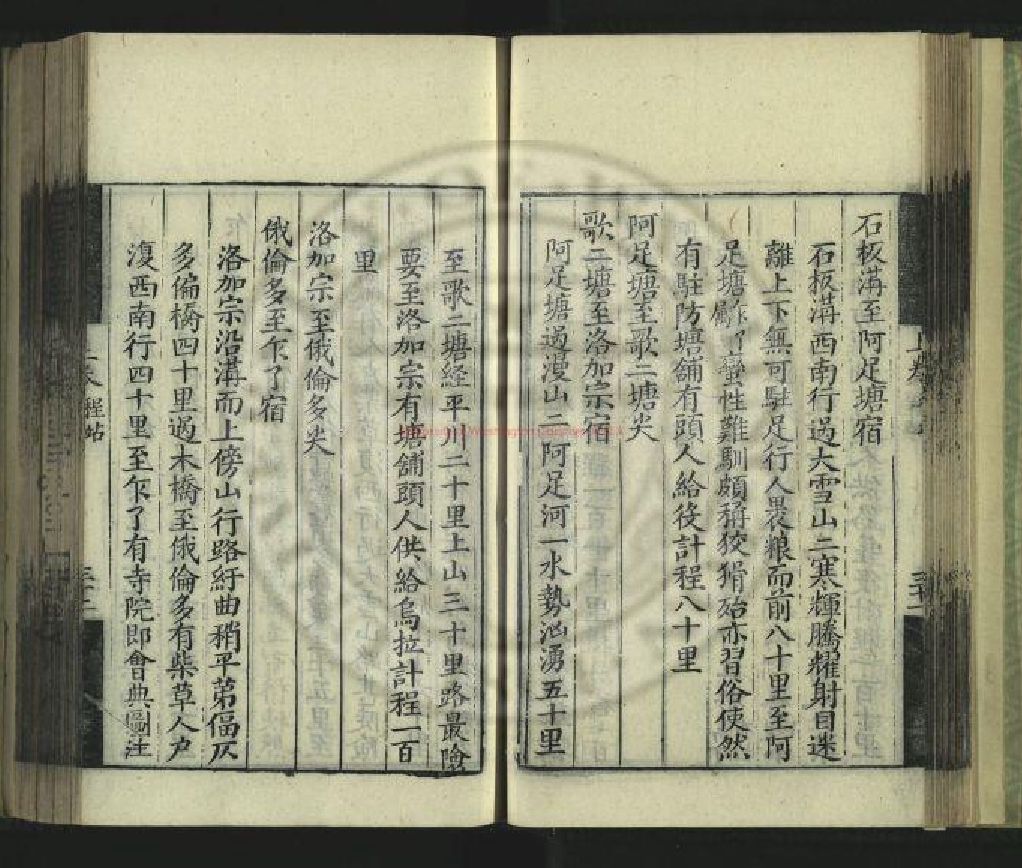 石板溝至阿足塘宿
石板溝西南行過大雪山二寒輝騰耀射目迷
離上下無可駐足行人畏粮而前八十里至阿
足塘 蠻性難馴頗稱狡猾殆亦習俗使然
有駐防塘舖有頭人給役計程八十里
阿足塘至歌二塘尖
歌二塘至洛加宗宿
阿足塘過漫山二阿足河一水勢汹湧五十里
至歌二塘経平川二十里上山三十里路最險
要至洛加宗有塘舖頭人供給烏拉計程一百
里
洛加宗至俄倫多尖
俄倫多至乍了宿
洛加宗沿溝而上傍山行路紆曲稍平第偪仄
多偏橋四十里過木橋至俄倫多有柴草人户
復西南行四十里至乍了有寺院即會典圖注
程站